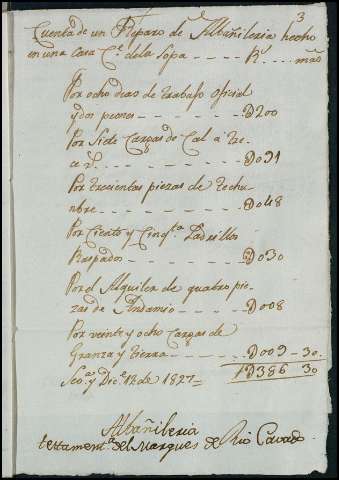 3
Cuenta de un Reparo de Albañileria hecho
en una Casa C.e dela Sopa - - - - R.s .... mrs
Por ocho dias de trabajo oficial
y dos peones - - - - - - - - D200
Por Siete Cargas de Cal a tre-
ce r.s - - - - - - - - D091
Por trecientas piezas de techu-
mbre - - - - - - - - D048
Por Ciento y Cinq.ta Ladrillos
Raspados - - - - - - - - D030
Por el Alquiler de quatro pie-
zas de Andamio - - - - D008
Por veinte y ocho Cargas de
Granza y tierra - - - - - D009 - 30.
Seg.a y Dic.e 12 de 1827 = 1D386 30
Albañileria
testament.a del Marques de Rio Cavado.